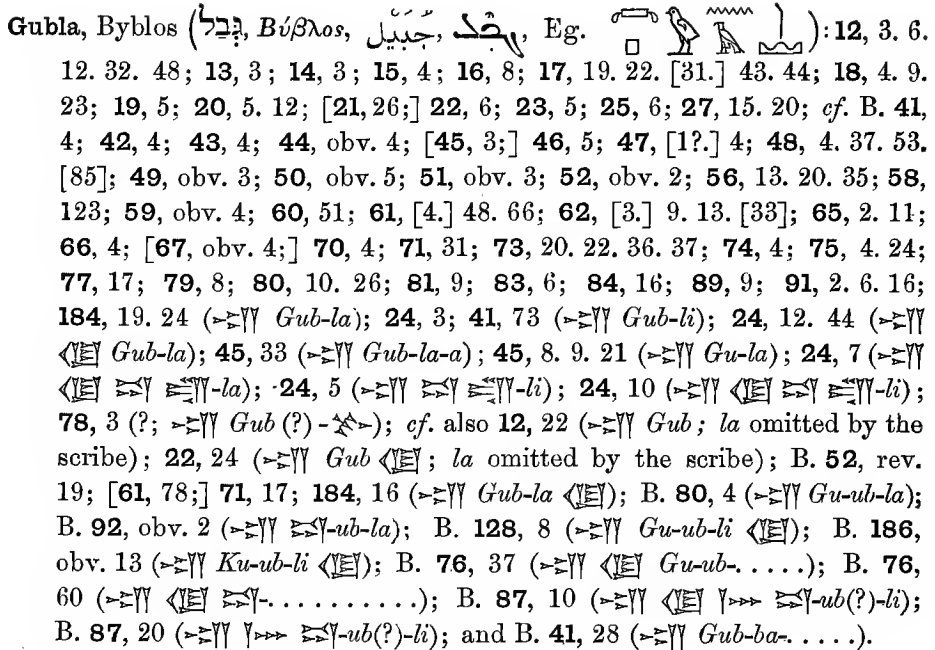 Gubla, Byblos (גְּבַל, Βύβλος, جُبَيْل, Eg. ): 12, 3. 6.
12. 32. 48; 13, 3; 14, 3; 15, 4; 16, 8; 17, 19. 22. [31.] 43. 44; 18, 4. 9.
23; 19, 5; 20, 5. 12; [21, 26;] 22, 6; 23, 5; 25, 6; 27, 15. 20; cf. B. 41,
4; 42, 4; 43, 4; 44, obv. 4; [45, 3;] 46, 5; 47, [1?.] 4; 48, 4. 37. 53.
[85]; 49, obv. 3; 50, obv. 5; 51, obv. 3; 52, obv. 2; 56, 13. 20. 35; 58,
123; 59, obv. 4; 60, 51; 61, [4.] 48. 66; 62, [3.] 9. 13. [33]; 65, 2. 11;
66, 4; [67, obv. 4;] 70, 4; 71, 31; 73, 20. 22. 36. 37; 74, 4; 75, 4. 24;
77, 17; 79, 8; 80, 10. 26; 81, 9; 83, 6; 84, 16; 89, 9; 91, 2. 6. 16;
184, 19. 24 (𒌷 Gub-la); 24, 3; 41, 73 (𒌷 Gub-li); 24, 12. 44 (𒌷
𒆠 Gub-la); 45, 33 (𒌷 Gub-la-a); 45, 8. 9. 21 (𒌷 Gu-la); 24, 7 (𒌷
𒆠 -la); 24, 5 (𒌷 -li); 24, 10 (𒌷 𒆠 -li);
78, 3 (?; 𒌷 Gub (?) - ); cf. also 12, 22 (𒌷 Gub; la omitted by the
scribe); 22, 24 (𒌷 Gub 𒆠; la omitted by the scribe); B. 52, rev.
19; [61, 78;] 71, 17; 184, 16 (𒌷 Gub-la 𒆠); B. 80, 4 (𒌷 Gu-ub-la);
B. 92, obv. 2 (𒌷 -ub-la); B. 128, 8 (𒌷 Gu-ub-li 𒆠); B. 186,
obv. 13 (𒌷 Ku-ub-li 𒆠); B. 76, 37 (𒌷 𒆠 Gu-ub-. . . . .); B. 76,
60 (𒌷 𒆠 -. . . . . . . . . . .); B. 87, 10 (𒌷 𒆠 -ub(?)-li);
B. 87, 20 (𒌷 -ub(?)-li); and B. 41, 28 (𒌷 Gub-ba-. . . . .).